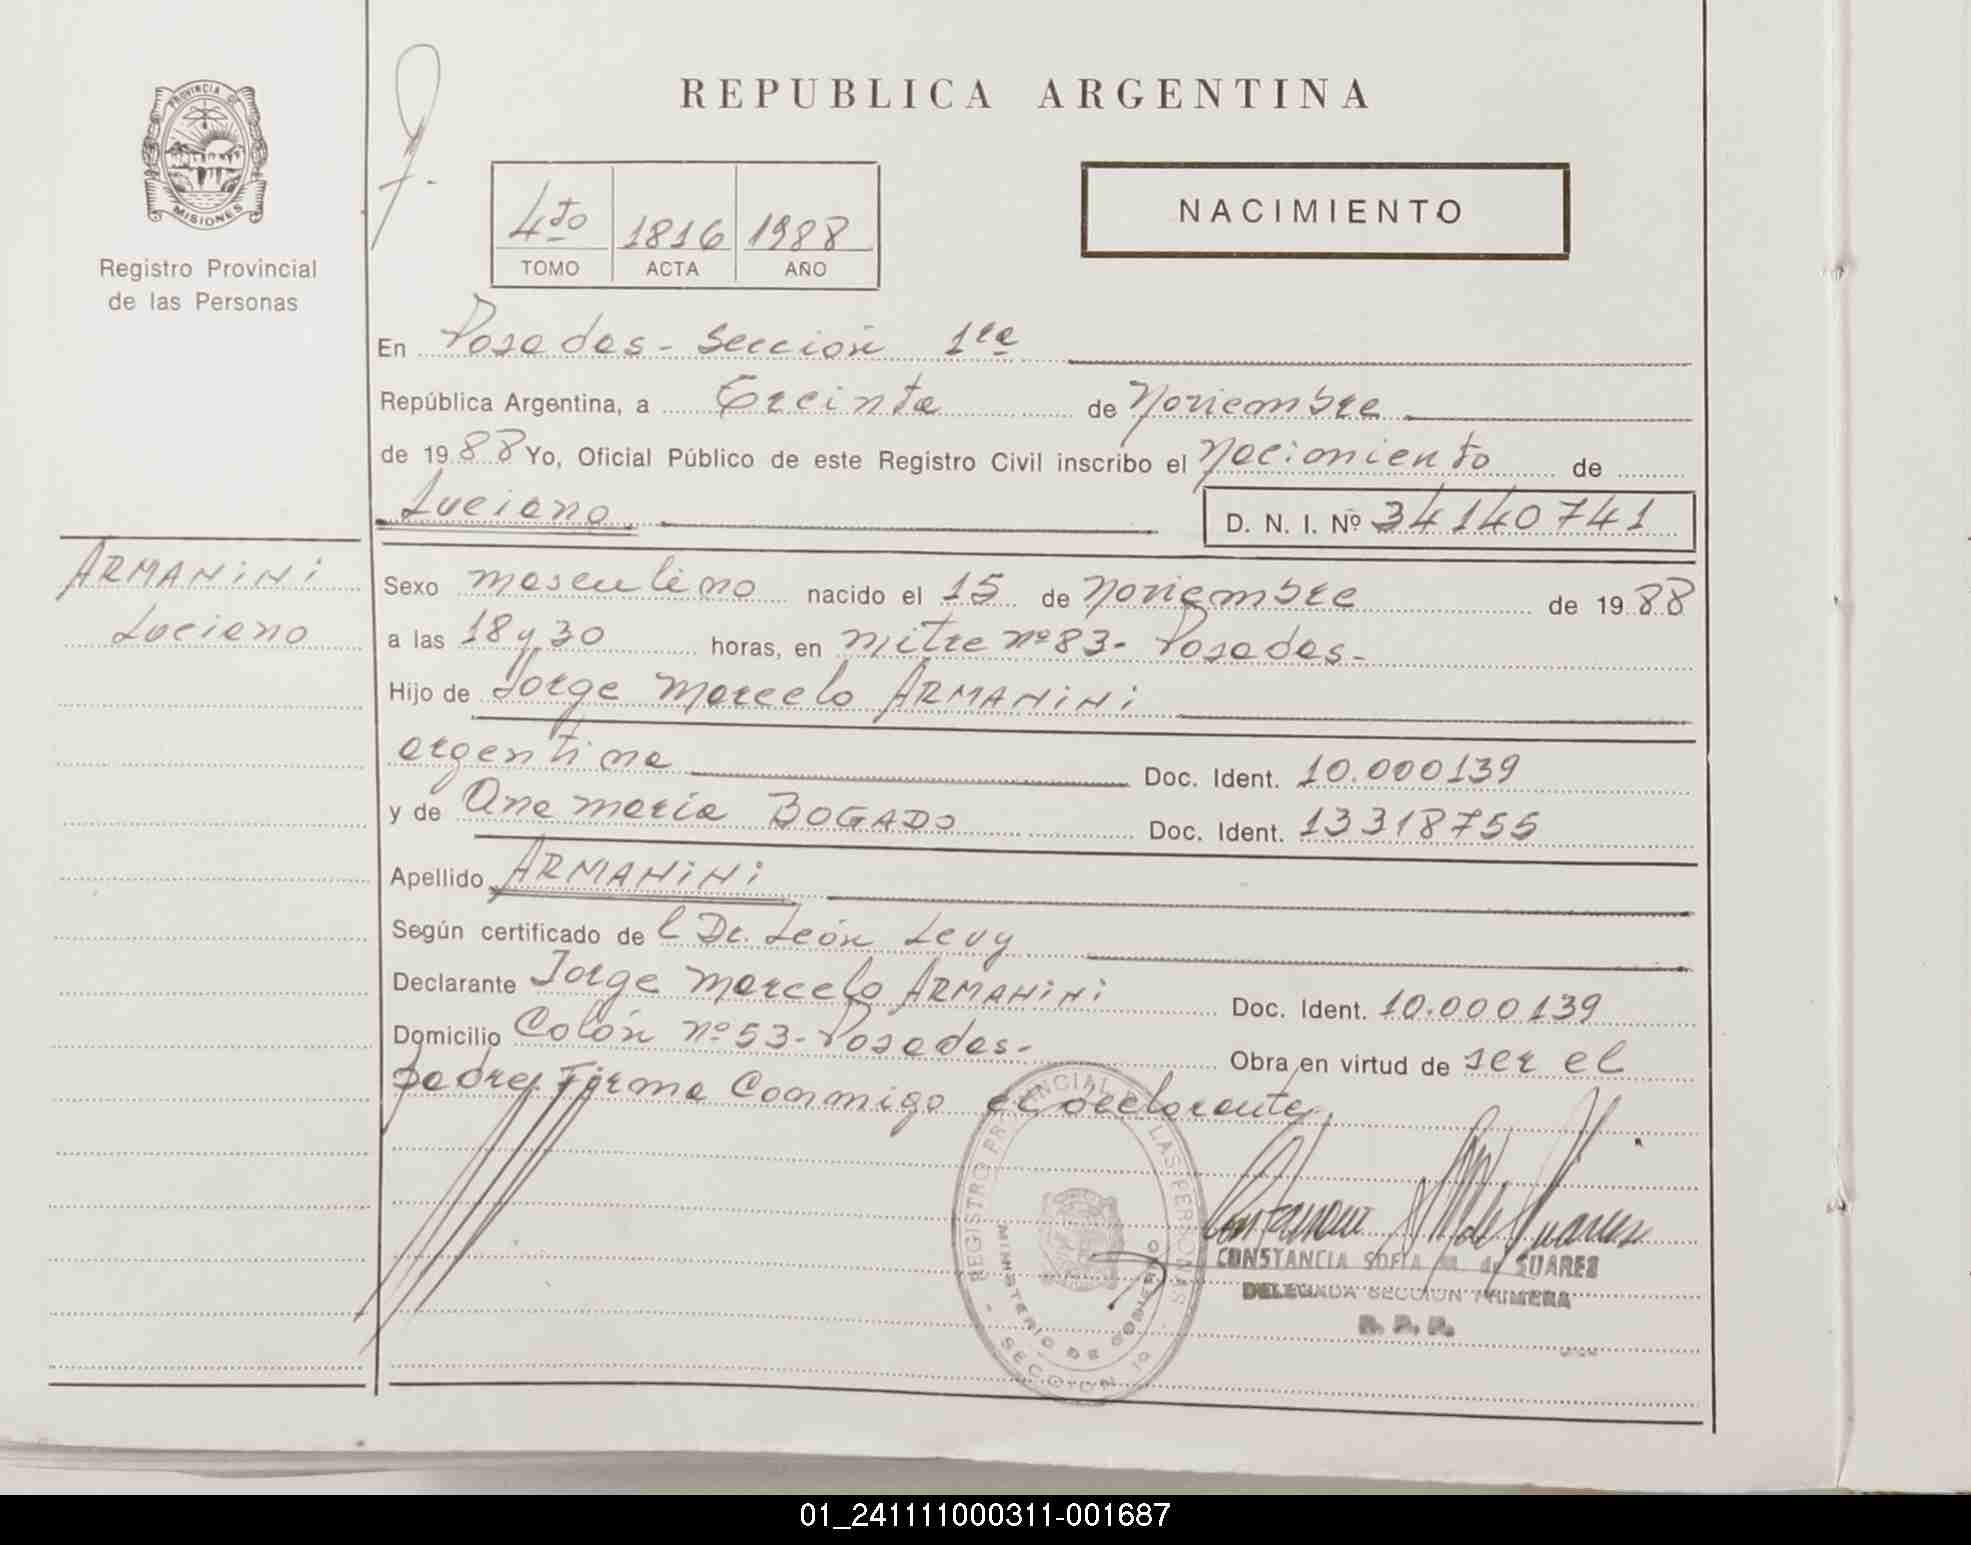 REPUBLICA ARGENTINA
PROVINCIA DE
MISIONES
Registro Provincial
de las Personas
4to 1816 1988
TOMO ACTA AÑO
NACIMIENTO
En Posadas - Sección 1ra
República Argentina, a Treinta de Noviembre
de 1988 Yo, Oficial Público de este Registro Civil inscribo el Nacimiento de
Luciano D. N. I. Nº 34140741
ARMANINI
Luciano
Sexo masculino nacido el 15 de Noviembre de 1988
a las 18 y 30 horas, en mitre nº 83 - Posadas -
Hijo de Jorge Marcelo ARMANINI
argentina Doc. Ident. 10.000139
y de Ana María BOGADO Doc. Ident. 13318755
Apellido ARMANINI
Según certificado de l Dr. León Levy
Declarante Jorge Marcelo ARMANINI Doc. Ident. 10.000139
Domicilio Colón nº 53 - Posadas - Obra en virtud de ser el
padre, Firma Conmigo el declarante,
REGISTRO PROVINCIAL DE LAS PERSONAS
MINISTERIO DE GOBIERNO
SECCION 1º
CONSTANCIA SOFIA M. de SUAREZ
DELEGADA SECCION PRIMERA
R. P. P.
01_241111000311-001687